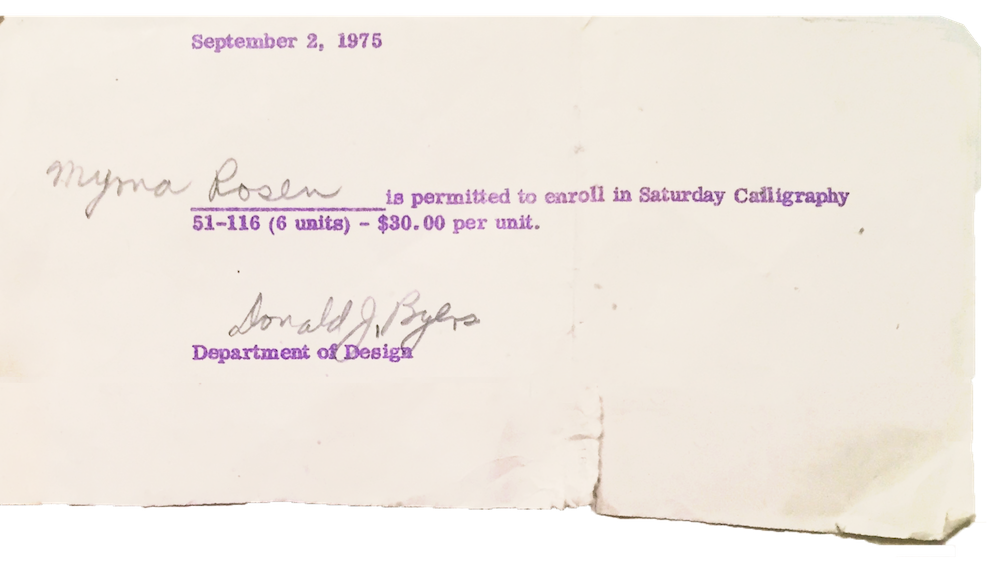 September 2, 1975
Myrna Rosen is permitted to enroll in Saturday Calligraphy
51-116 (6 units) - $30.00 per unit.
Donald J. Byers
Department of Design